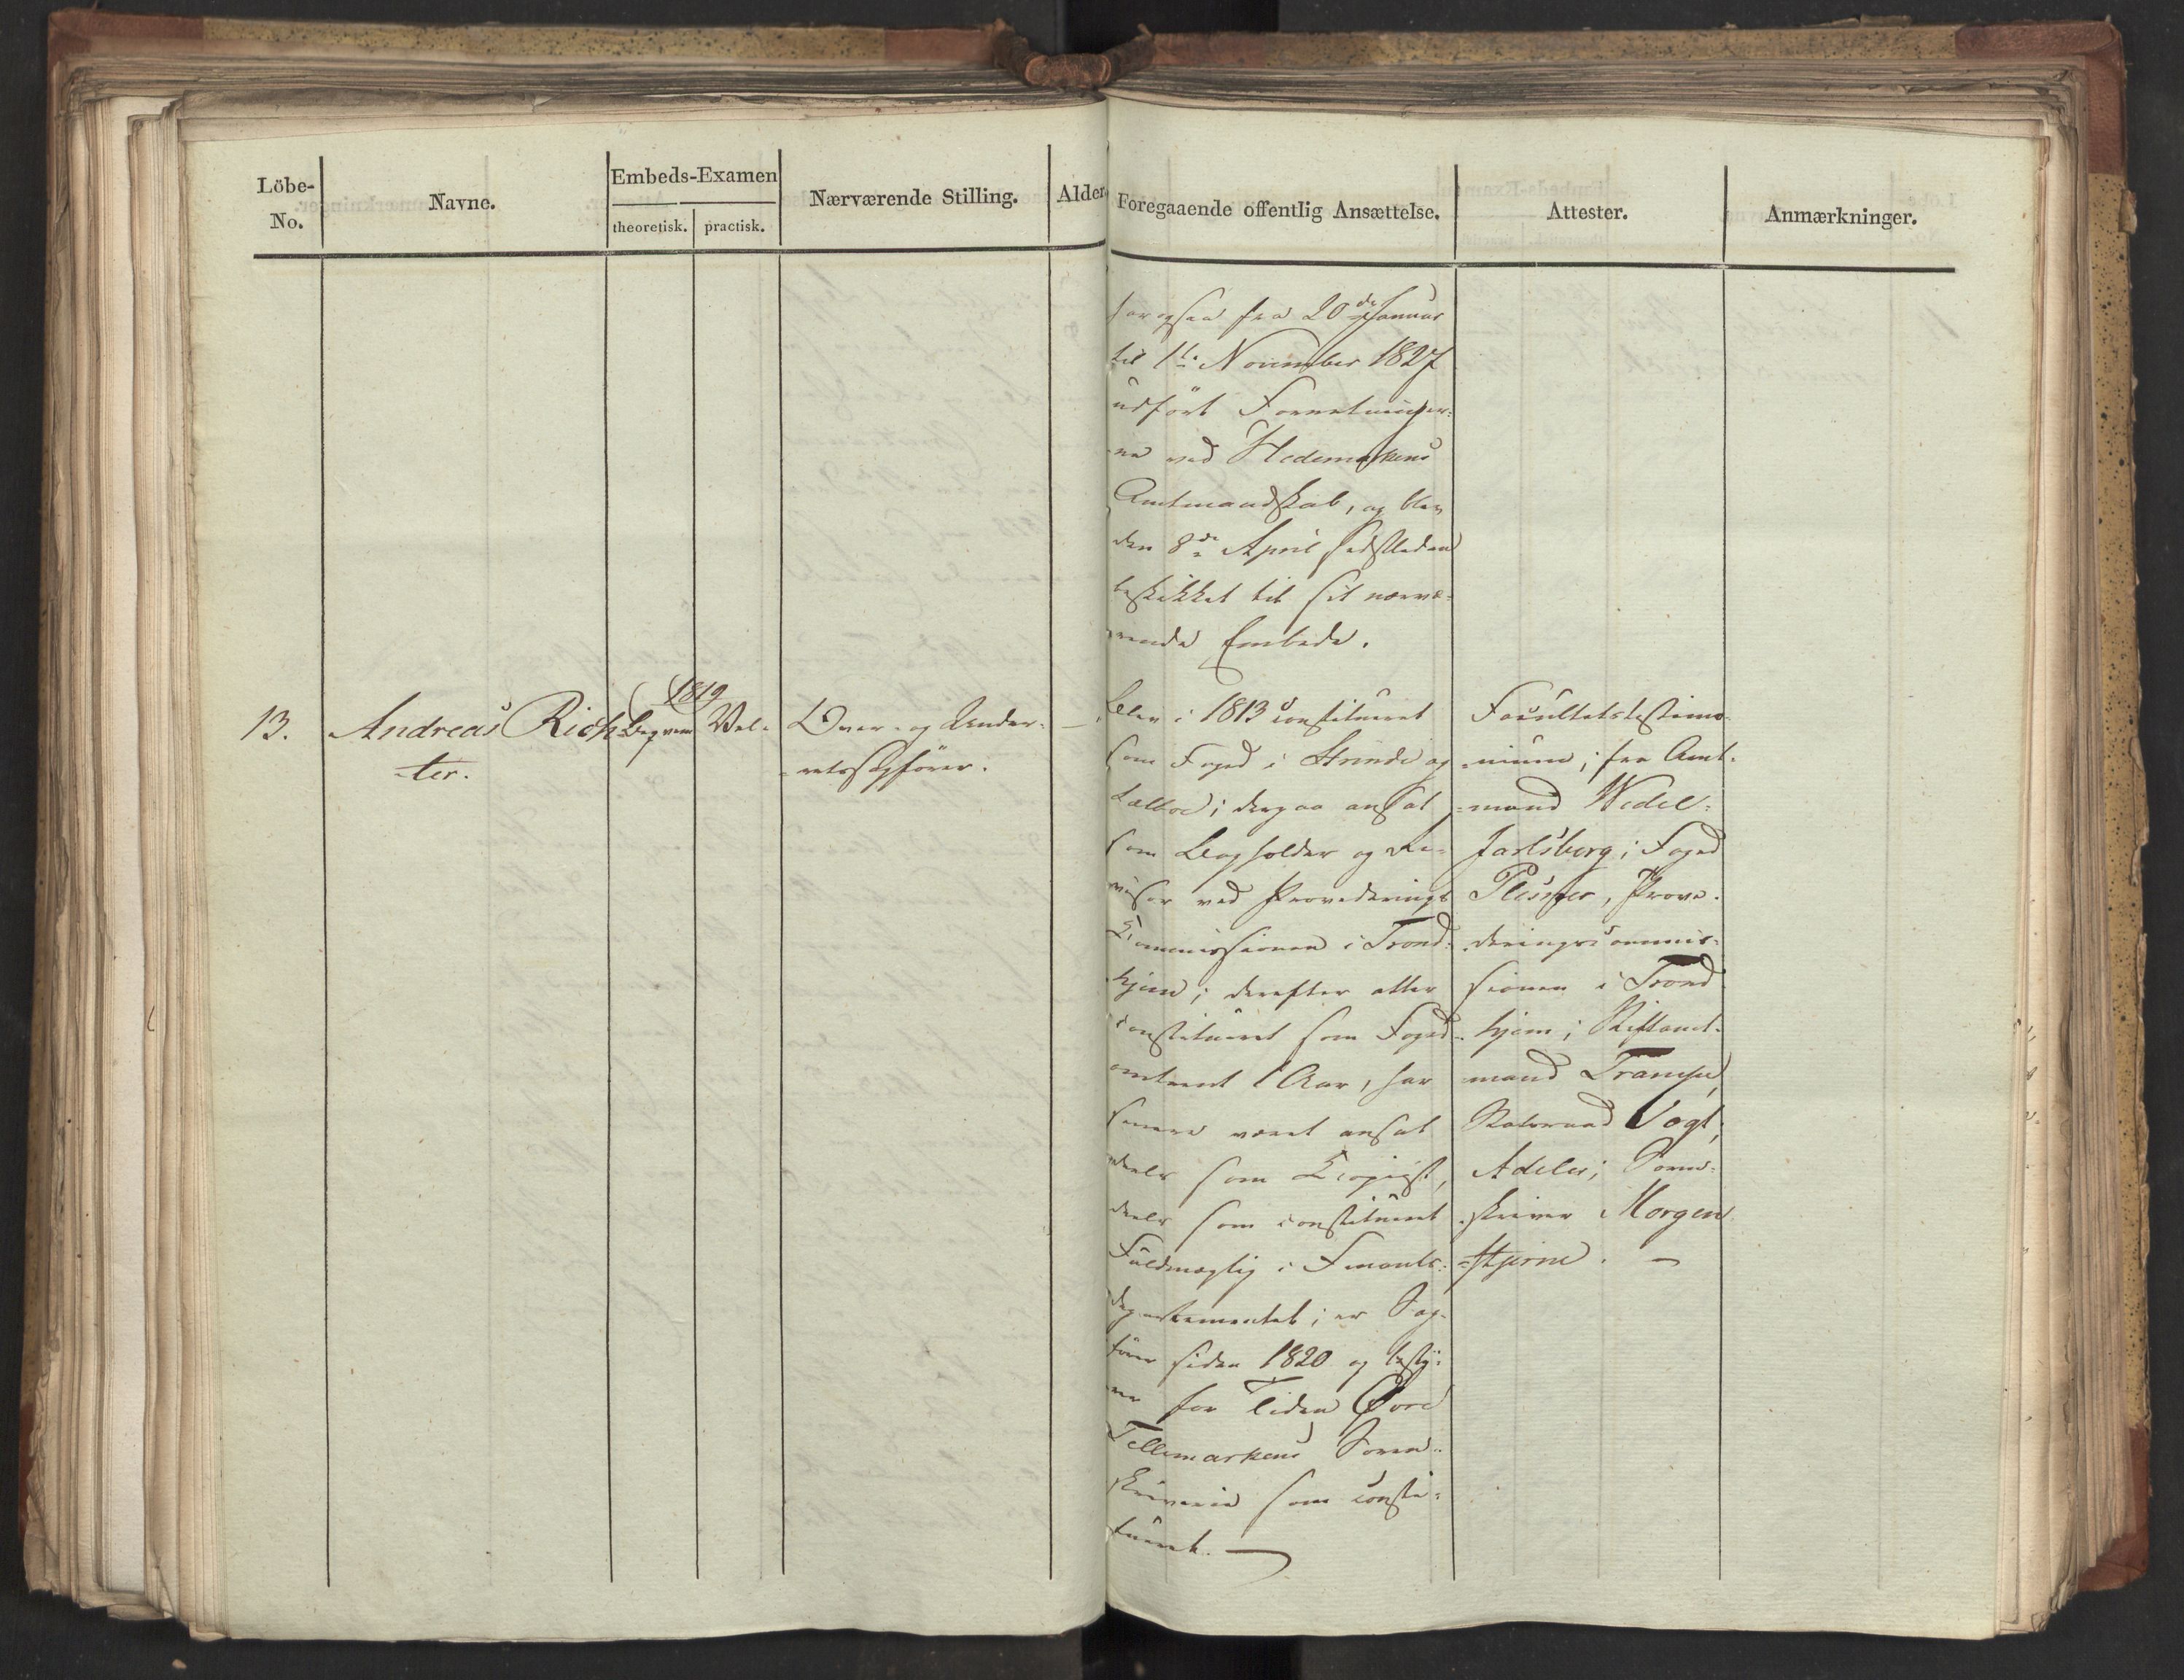 Löbe-
No.
Navne.
Embeds-Examen
theoretisk.
practisk.
Nærværende Stilling.
Alder
Foregaaende offentlig Ansættelse.
Attester.
Anmærkninger.
har ogsaa fra 20de Januar
til 1te November 1827
udført Forretninger-
ne ved Hedemarkens
Amtmandskab, og blev
den 8de April sidstleden
beskikket til sit nærvæ-
rende Embede.
13.
Andreas Rich-
ter.
(1819
Beqvem
Vel.
Over- og Under-
retssagfører.
—
Blev i 1813 constitueret
som Foged i Strinde og
Sælboe; derpaa ansat
som Bogholder og Re-
visor ved Provederings
Commissionen i Trond-
hjem; derefter atter
constitueret som Foged
omtrent 1 Aar, har
senere været ansat
deels som Copiist,
deels som constitueret
Fuldmægtig i Finants-
departementet; er Sag-
fører siden 1820 og besty-
rer for Tiden Øvre
Tellemarkens Soren-
skriverie som consti-
tueret. —
Facultetstestimo-
nium; fra Amt-
mand Wedel-
Jarlsberg; Foged
Plesner, Prove-
deringscommis-
sionen i Trond-
hjem; Stiftamt-
mand Trampe,
Statsraad Vogt,
Adeler; Soren-
skriver Morgen
-stjerne. —